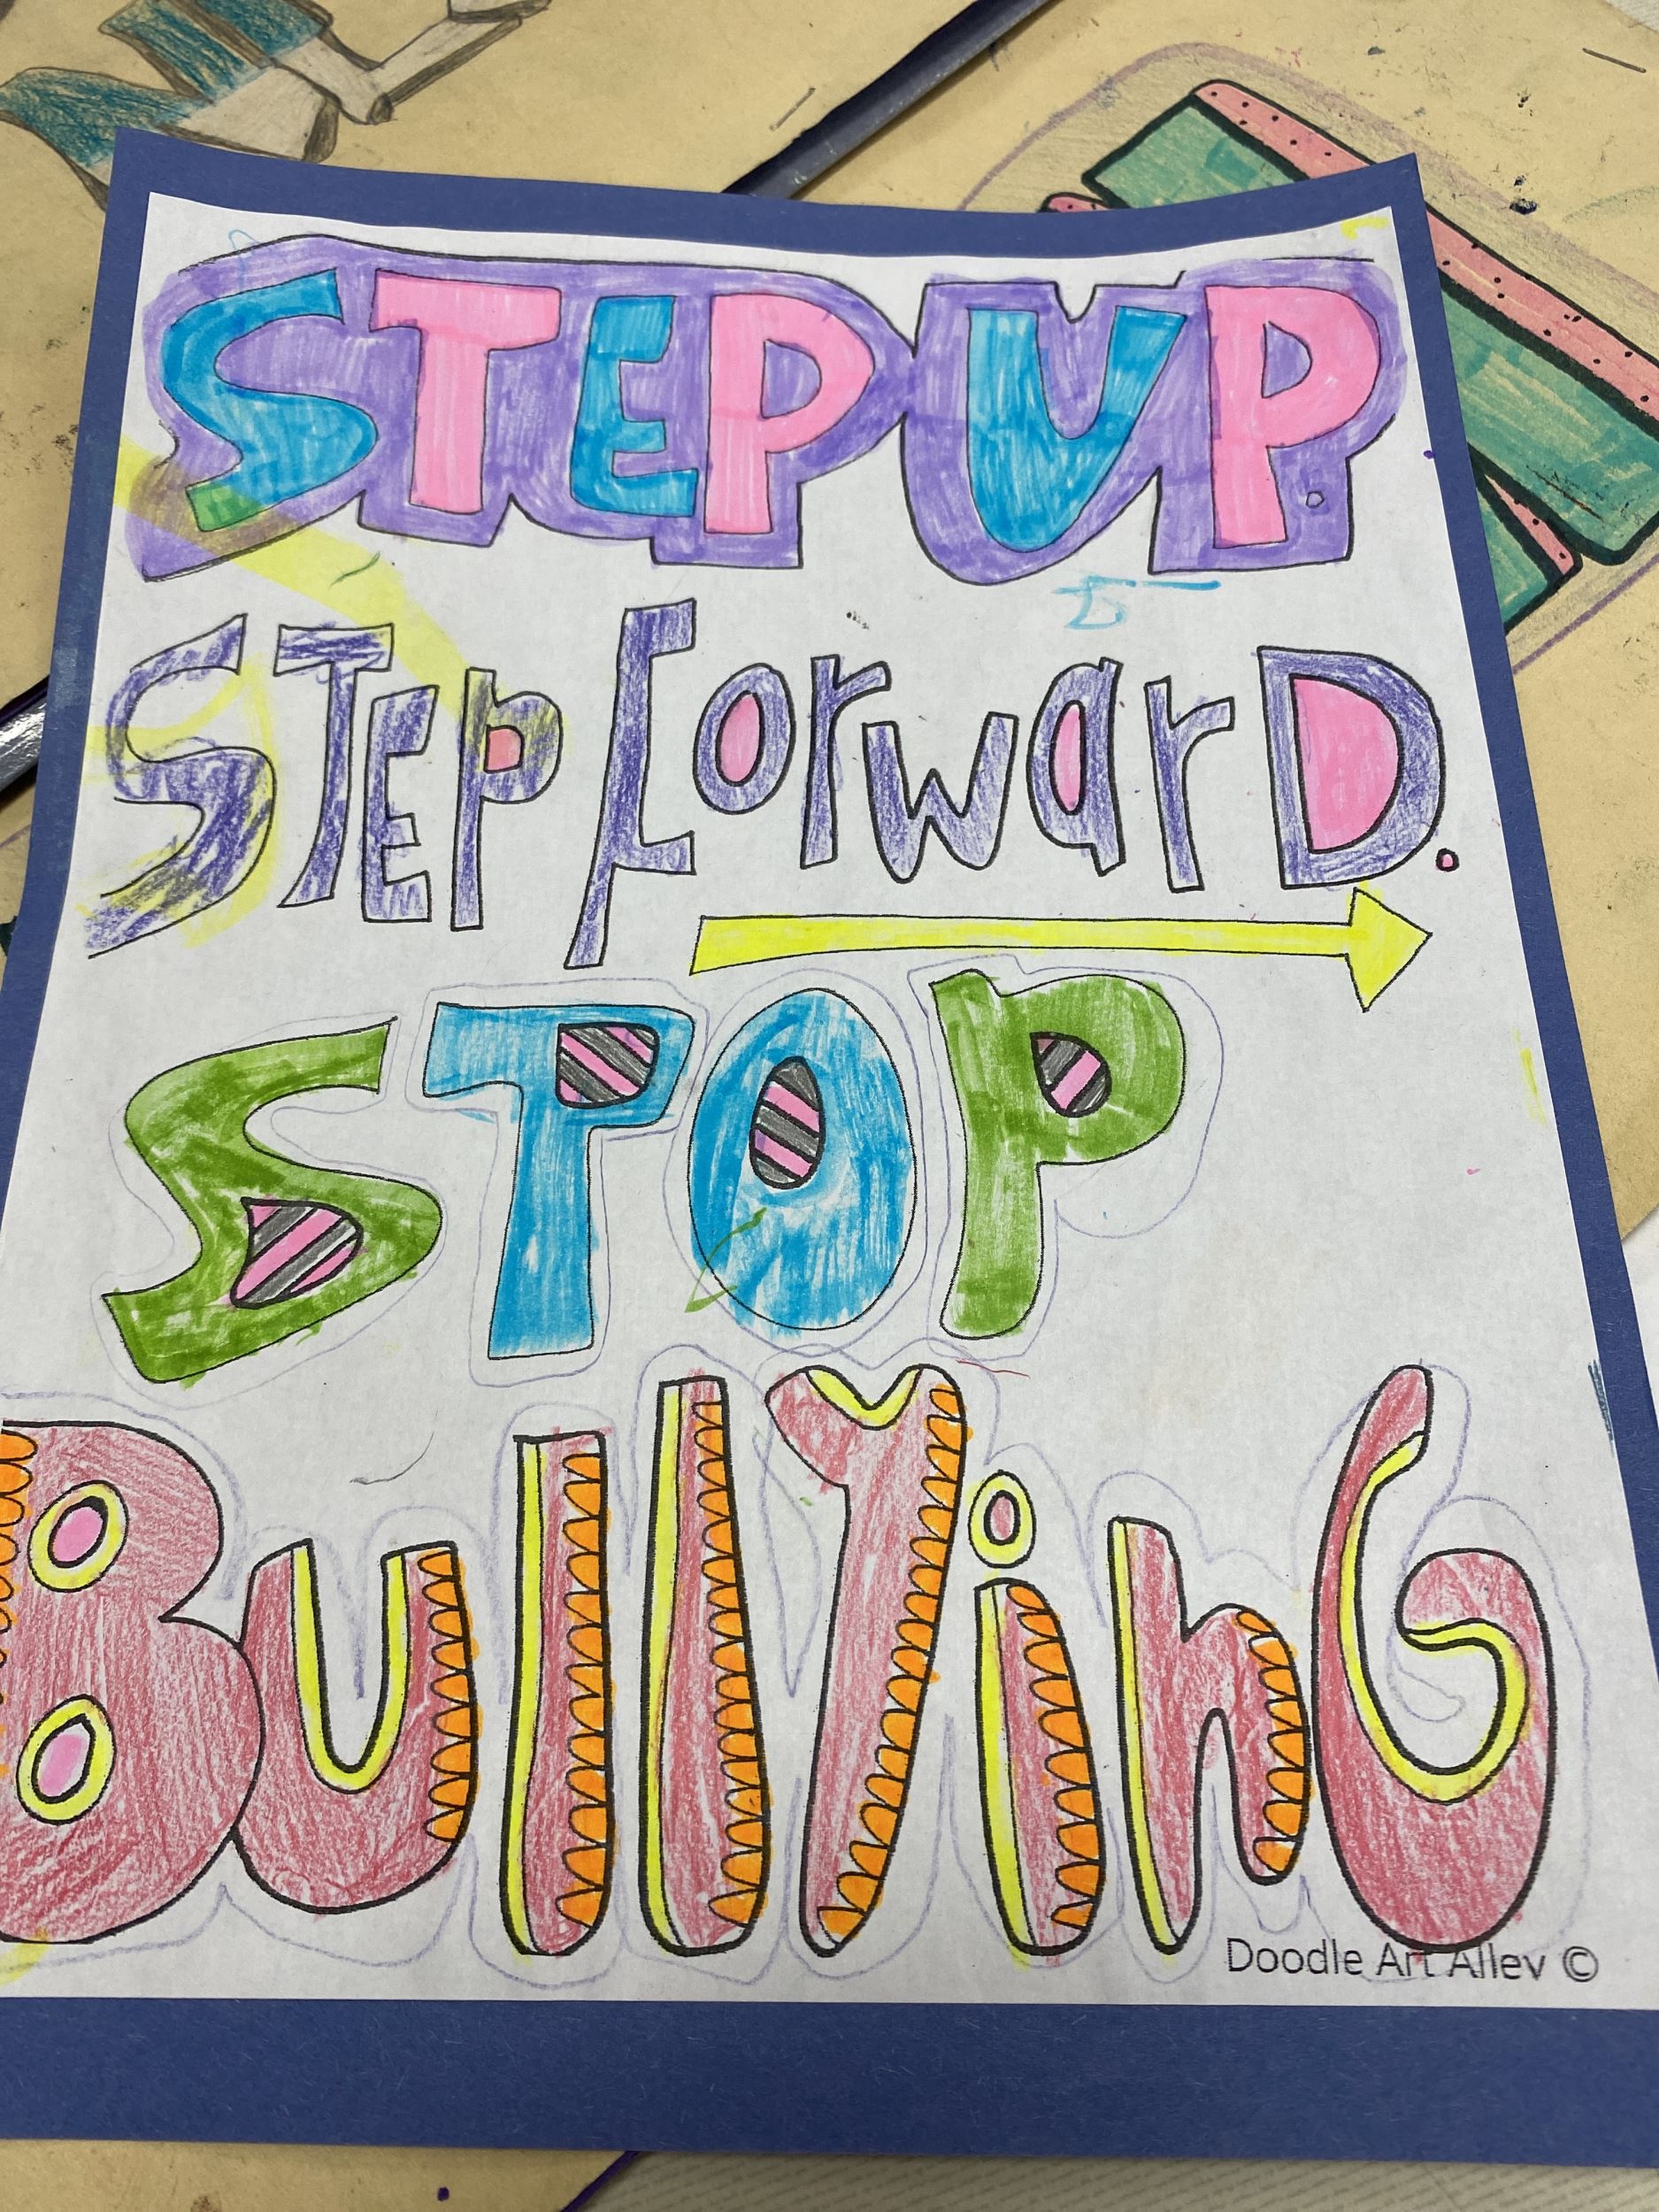 STEP UP.
STEP forwarD.
STOP
BullYinG
Doodle Art Alley ©